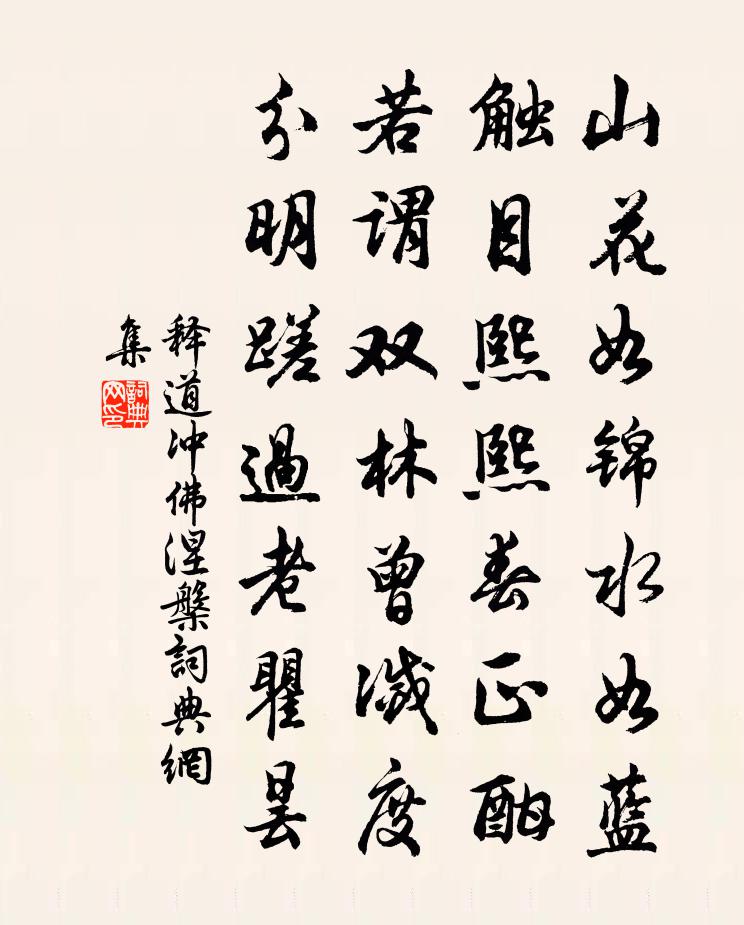 山花如锦水如蓝
触目熙熙春正酣
若谓双林曾灭度
分明蹉過老瞿昙
释道冲佛涅槃詞典網
集
詞典網印